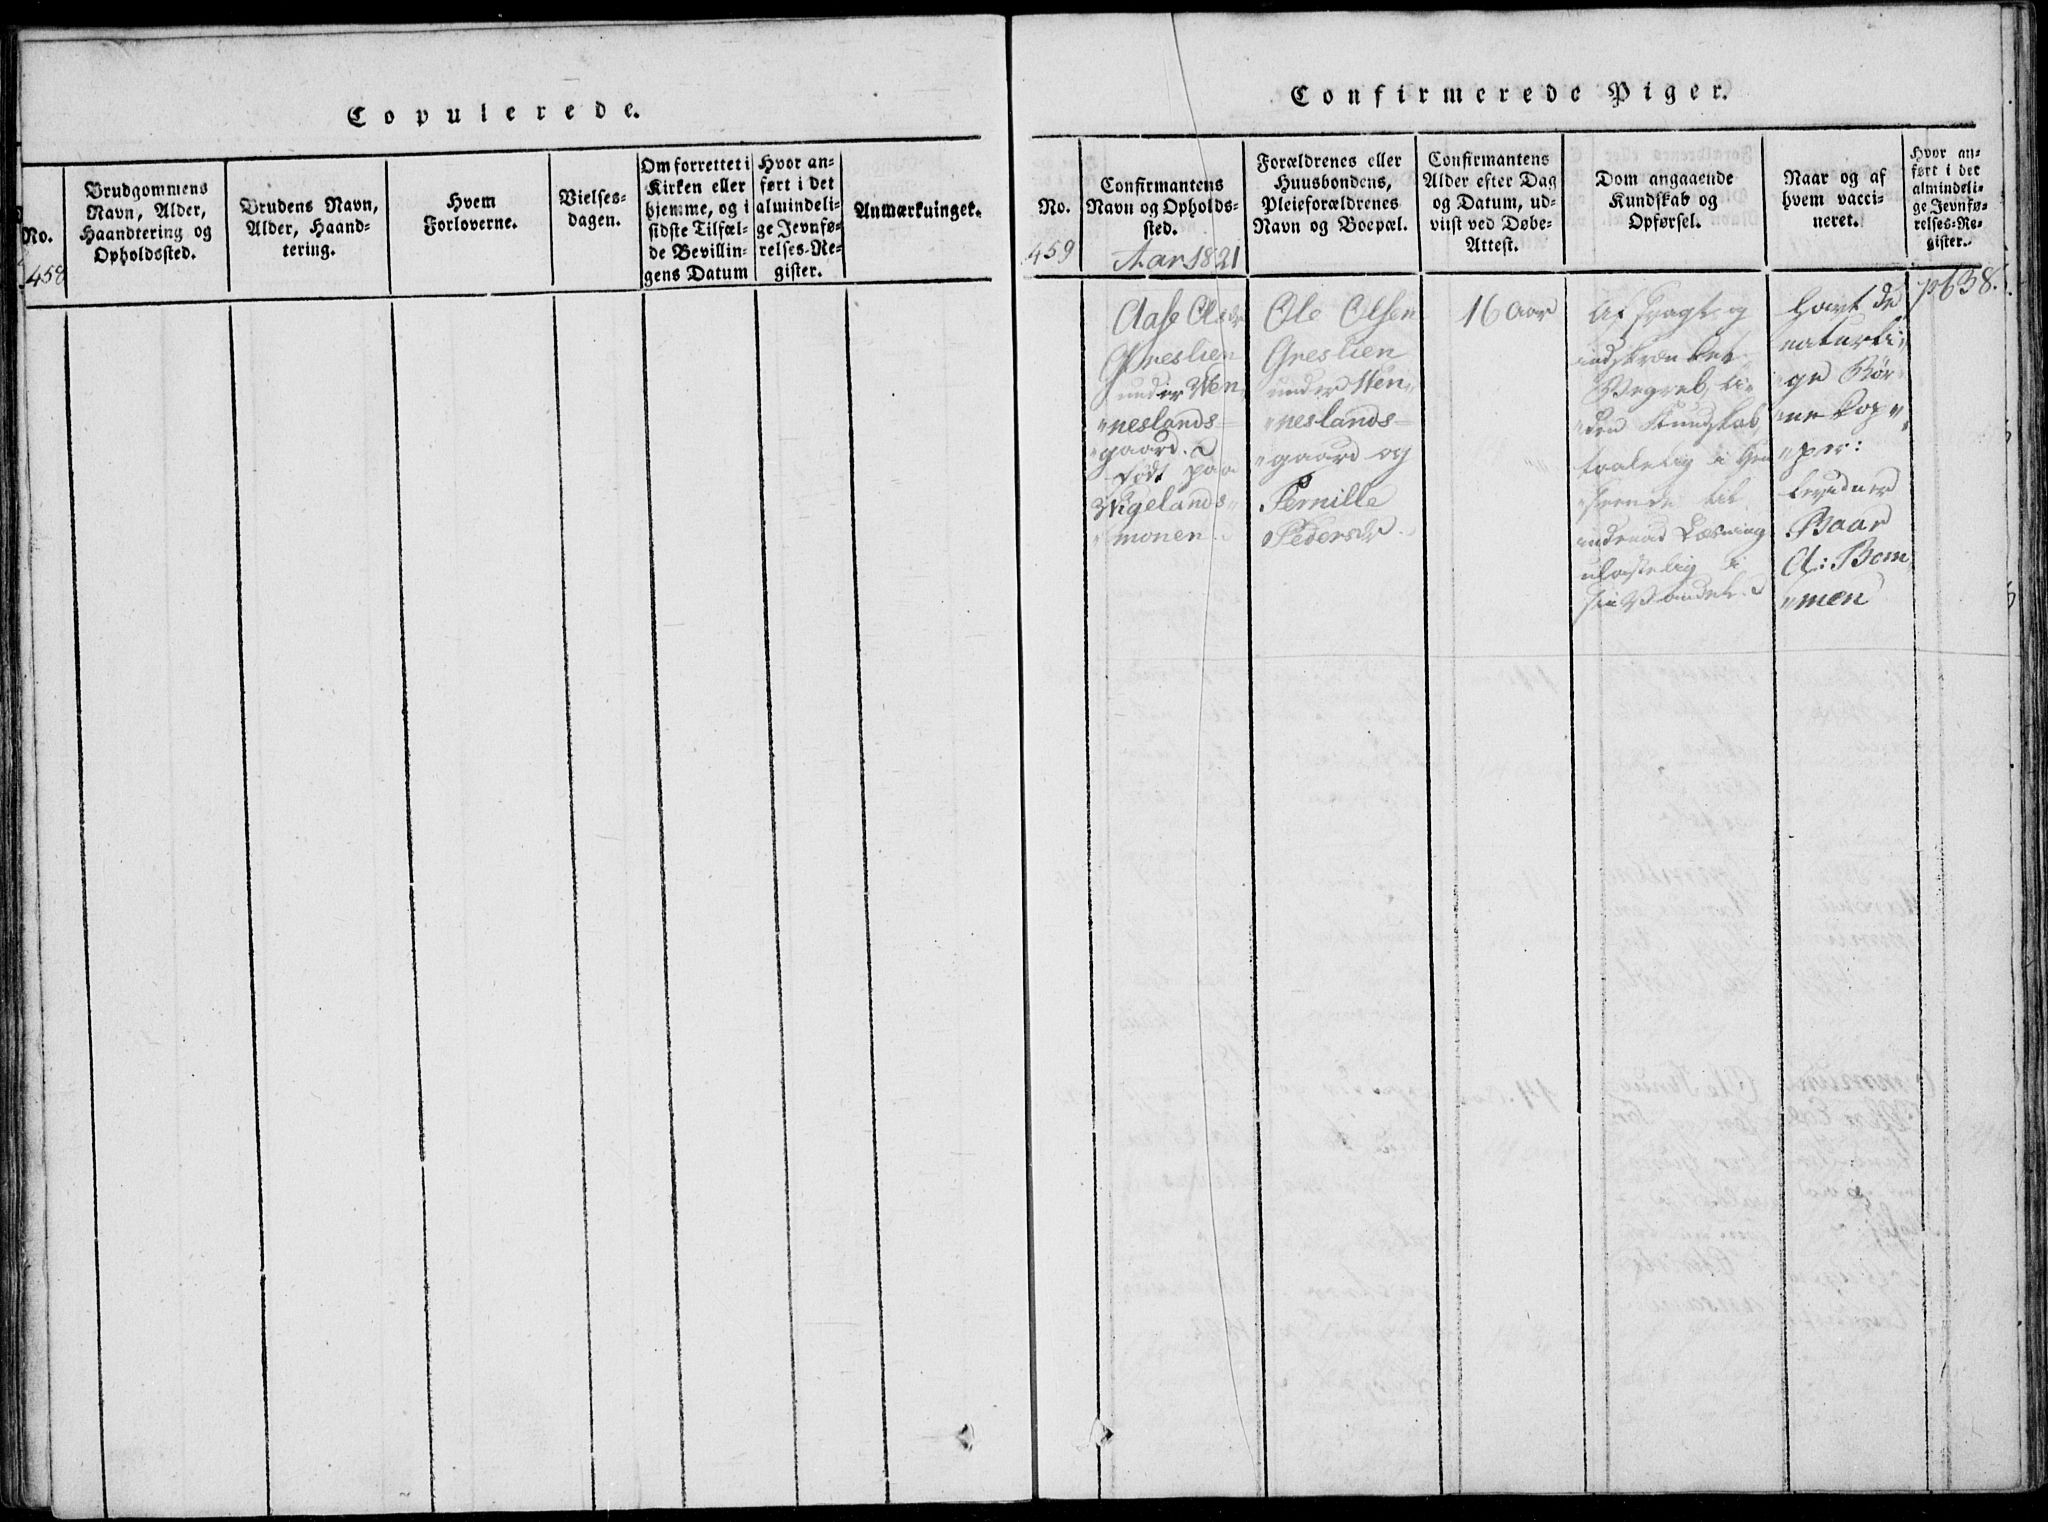 Copulerede.
No.
Brudgommens
Navn, Alder,
Haandtering og
Opholdssted.
Brudens Navn,
Alder, Haand-
tering.
Hvem
Forloverne.
Vielses-
dagen.
Om forrettet i
Kirken eller
hjemme, og i
sidste Tilfæl-
de Bevillin-
gens Datum
Hvor an-
ført i det
almindeli-
ge Jevnfø-
relses-Re-
gister.
Anmærkuinger.
458
Confirmerede Piger.
No.
Confirmantens
Navn og Opholds-
sted.
Forældrenes eller
Huusbondens,
Pleieforældrenes
Navn og Boepæl.
Confirmantens
Alder efter Dag
og Datum, ud-
viist ved Døbe-
Attest.
Dom angaaende
Kundskab og
Opførsel.
Naar og af
hvem vacci-
neret.
Hvor an-
ført i det
almindeli-
ge Jevnfø-
relses-Re-
gister.
459
Aar 1821
Aase Olsdr
Greslien
under Wen
neslands=
gaard.
født paa
Wigelands
monen.
Ole Olsen
Greslien
under Wen
neslands=
gaard og
Pernille
Pedersdr.
16 Aar
Af svagt og
indskrænket
Begreb, li-
den Kundskab,
taalelig i
til
indenad Læsning
ulastelig i
sin Vandel.
Havt de
naturli
ge Bör
ne Kop
per:
Levidner
Baar
A: Bom
men
p 638.